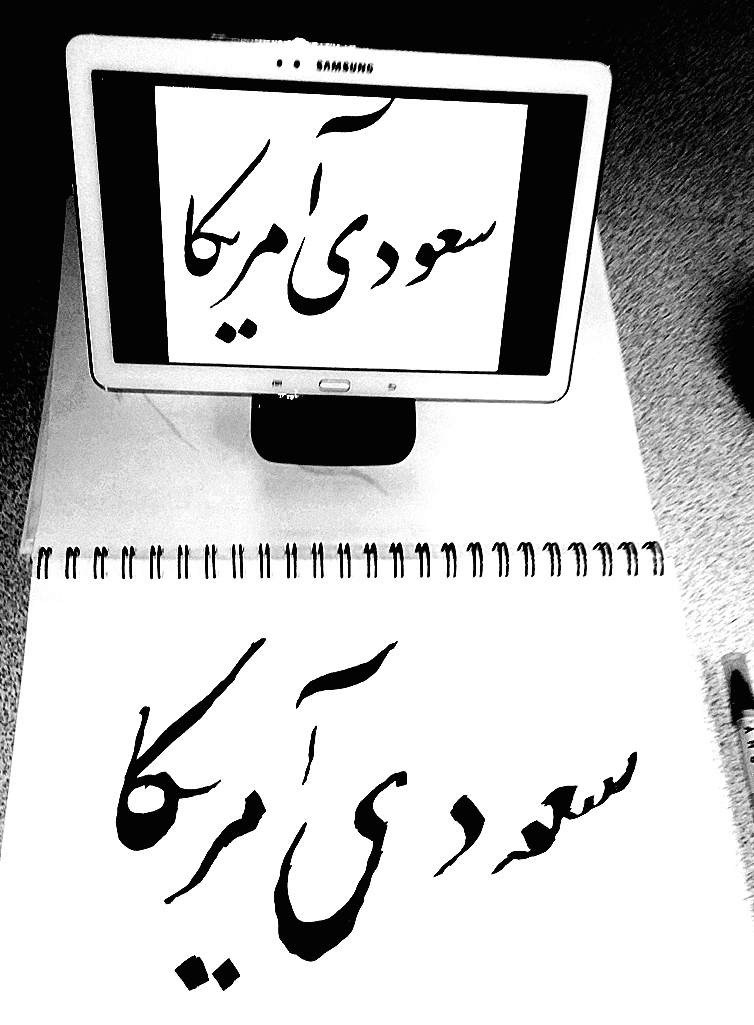 SAMSUNG
سعودی آمریکا
سعودی آمریکا